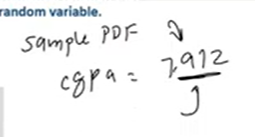 random variable.
sample PDF
cgpa = 7.912
J